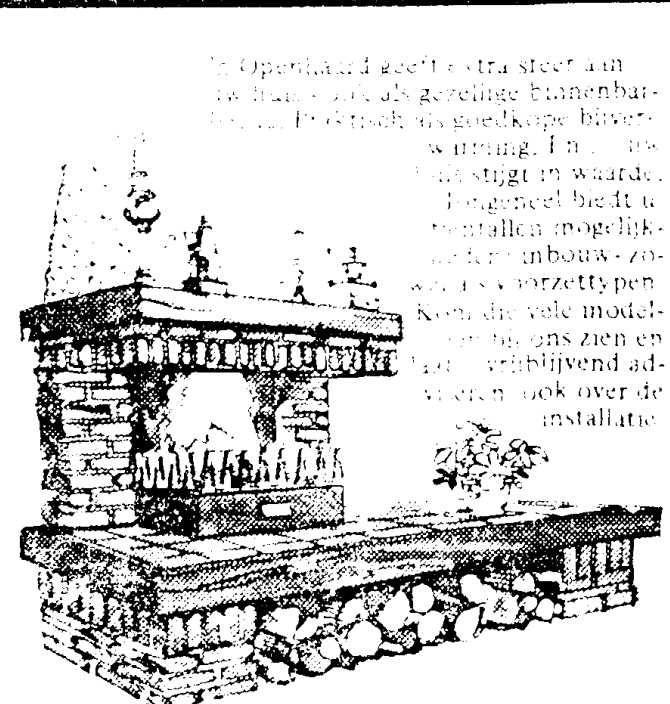 Openhaard geeft extra sfeer aan
als gezellige binnenbar-
Praktisch als goedkope bijver-
warming. En uw
huis stijgt in waarde.
Jongeneel biedt u
tientallen mogelijk-
heden: inbouw- zo-
wel als voorzettypen
Kom die vele model-
len bij ons zien en
laat vrijblijvend ad-
viseren ook over de
installatie